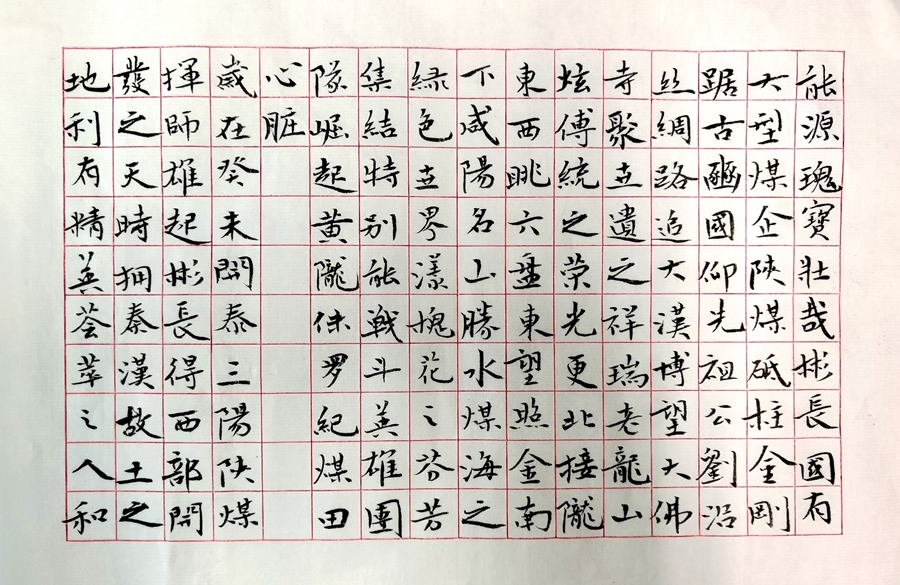 能源瑰寶壯哉彬長國有
大型煤企陝煤砥柱金剛
踞古豳國仰先祖公劉沿
丝綢路追大漢博望大佛
寺聚世遺之祥瑞老龍山
炫傳統之荣光更北接隴
東西眺六盘東望照金南
下咸陽名山勝水煤海之
绿色世界漾槐花之芬芳
集結特别能戰斗英雄團
隊崛起黄隴侏罗紀煤田
心脏
歲在癸未開泰三陽陝煤
揮師雄起彬長得西部開
發之天時拥秦漢故土之
地利有精英荟萃之人和